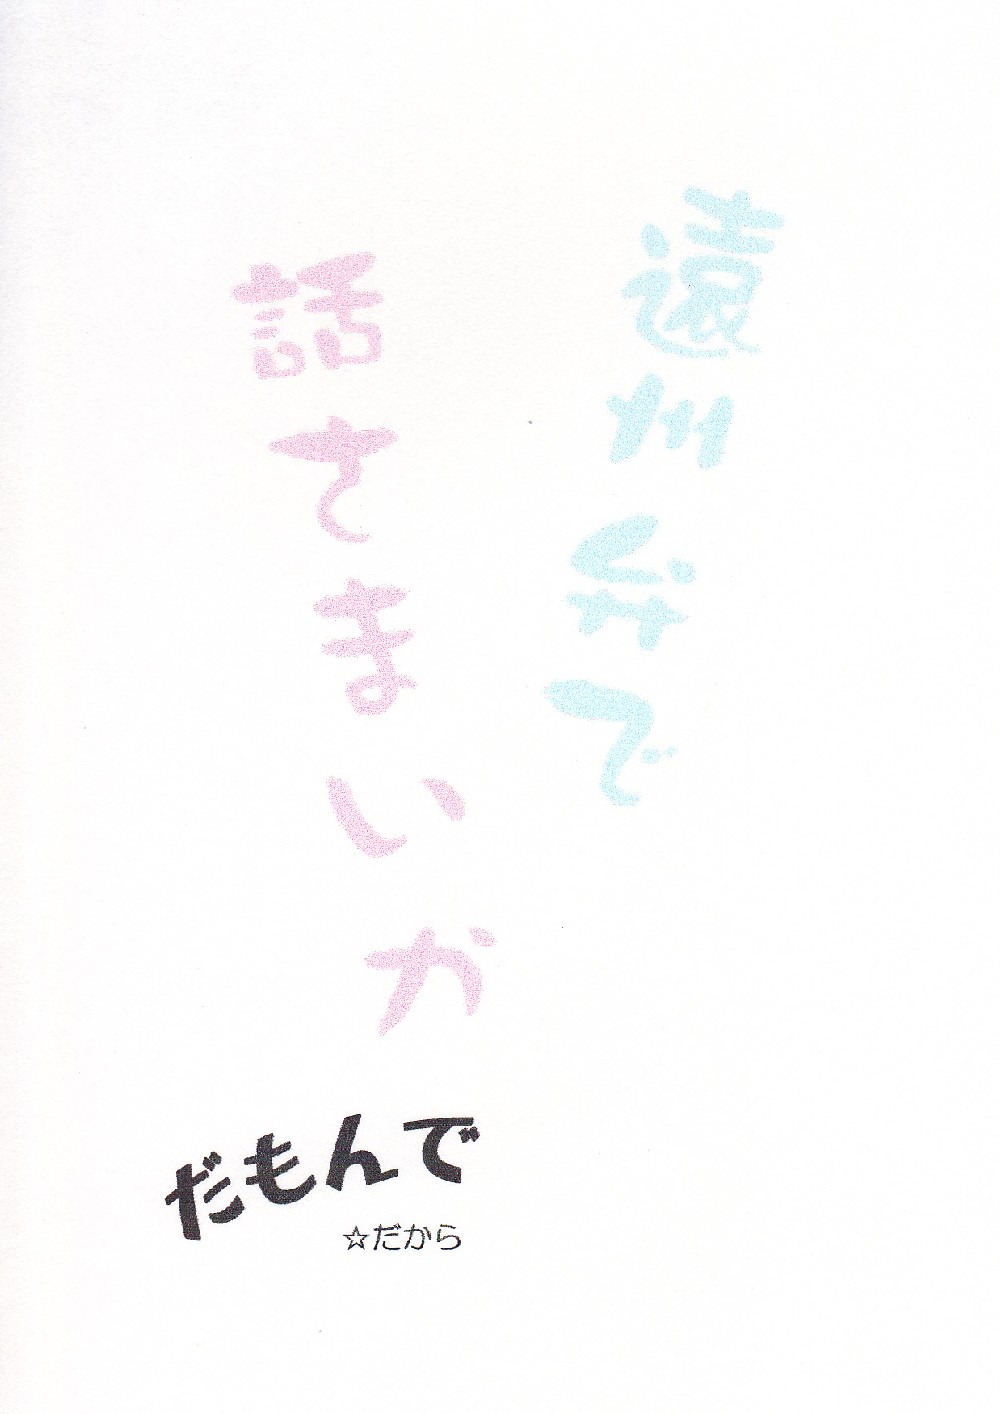 遠州弁で
話さまいか
だもんで
☆だから